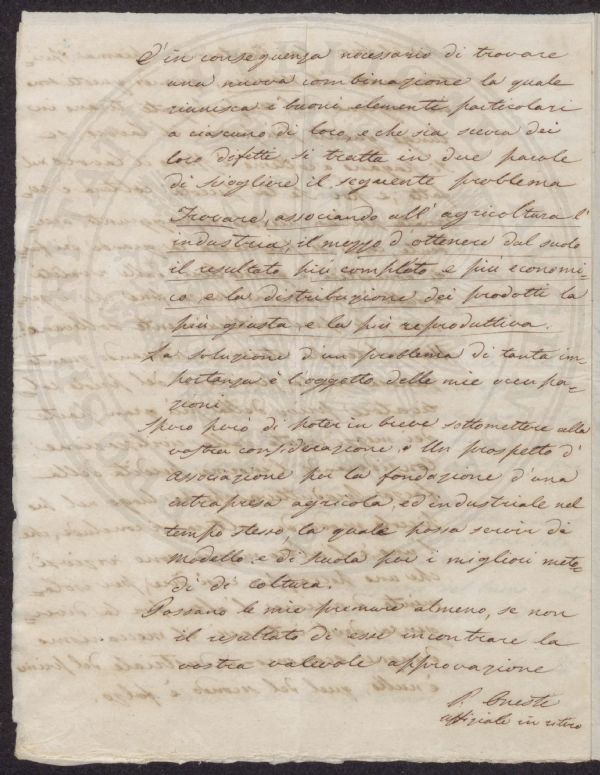 È in conseguenza necessario di trovare
una nuova combinazione la quale
riunisca i buoni elementi particolari
a ciascuno di loro, e che sia scevra dei
loro difetti si tratta in due parole
di sciogliere il seguente problema
Trovare, associando all'agricoltura l'
industria, il mezzo d'ottenere dal suolo
il resultato più completo e più economi-
co e la distribuzione dei prodotti la
più giusta e la più reproduttiva.
La soluzione d'un problema di tanta im-
portanza è l'oggetto delle mie occupa-
zioni
Spero però di poter in breve sottomettere alla
vostra considerazione. Un prospetto d'
associazione per la fondazione d'una
intrapresa agricola, ed industriale nel
tempo stesso, la quale possa servir di
modello e di scuola per i migliori meto-
di di coltura
Possano le mie premure almeno, se non
il resultato di esse incontrare la
vostra valevole approvazione
uffiziale in ritiro